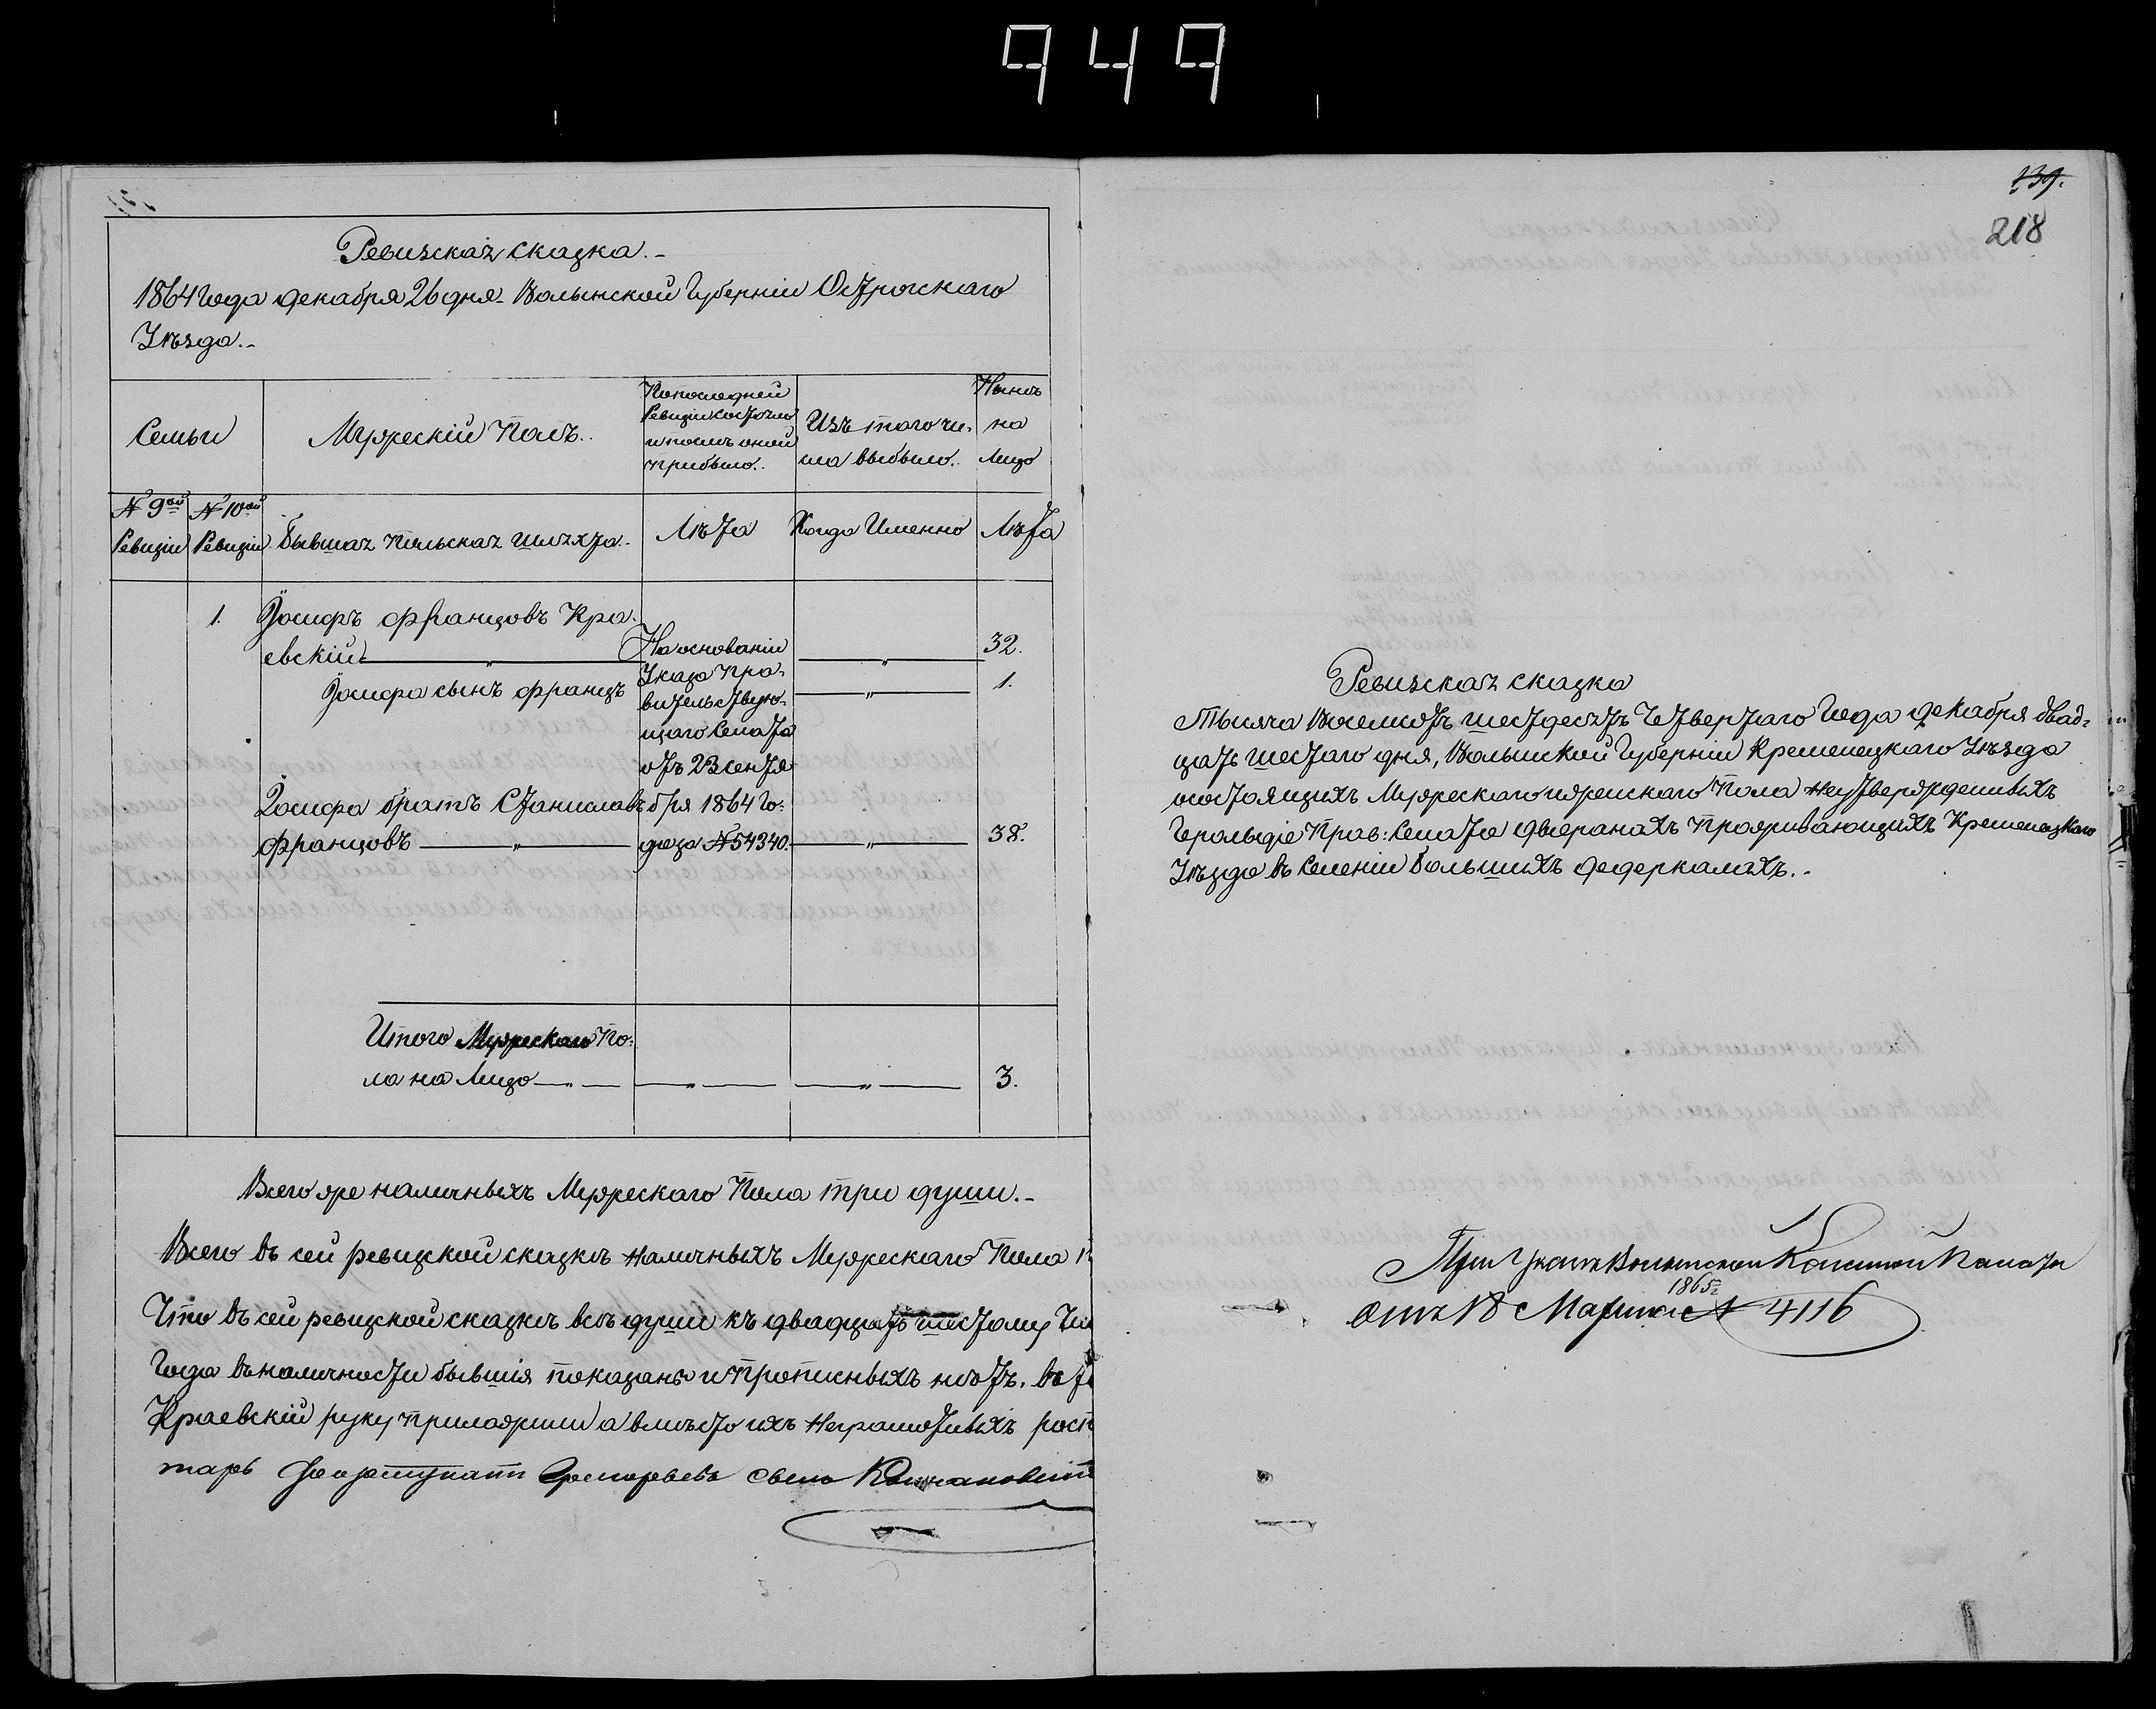 949
Ревизская сказка.-
1864 Года Декабря 26 дня. Волынской Губерніи Острогскаго
Уѣзда.-
Семьи
Мужескій Полъ.
По последней
Ревизіи состояло
и послѣ оной
прибыло.
Изъ того чи-
сла выбыло.
Нынѣ
на
Лицо
№ 9ой
Ревизіи
№ 10ой
Ревизіи
Бывшая Польская Шляхта.-
Лѣта
Когда Именно
Лѣта
1. Іосифъ Францовъ Кра-
евскій — „ — На основаніи — „ — 32.
Іосифа сынъ Францъ Указа Пра- — „ — 1.
вительствую-
щаго Сената
отъ 23 сентя-
Іосифа братъ Станиславъ бря 1864 Го-
Францовъ — „ — да за № 54340. — „ — 38.
Итого Мужескаго По-
ла на Лицо — „ — — „ — — „ — 3.
Всего же наличныхъ Мужескаго Пола три души.-
Всего въ сей ревизкой сказкѣ наличныхъ Мужескаго Пола
Что въ сей ревизкой сказкѣ всѣ души къ двадцать шестому
Года въ наличности бывшія показаны и прописныхъ нѣтъ. въ
Краевскій руку приложили а вмѣсто ихъ неграмотныхъ
тарь Григорьевъ сынъ
139.
218
Ревизская сказка
Тысяча Восемсотъ шестдесятъ Четвертаго Года Декабря двад-
цать шестаго дня, Волынской Губерніи Кременецкаго Уѣзда
состоящихъ Мужескаго и женскаго Пола неутвержденныхъ
Герольдіе Прав: Сената дворянахъ проживающихъ Кременецкаго
Уѣзда въ Селеніи Большихъ Дедеркалахъ.-
При Указѣ Волынской Казенной Палаты
1865г.
отъ 18 Марта № 4116